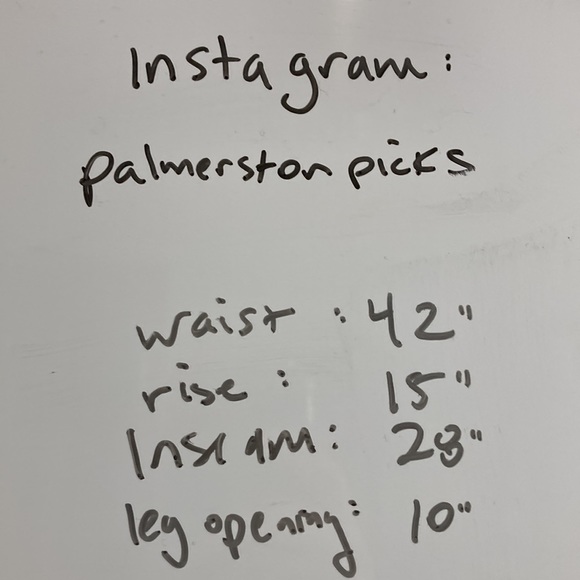 Instagram:
palmerston picks
waist : 42"
rise : 15"
Inseam: 28"
leg opening: 10"